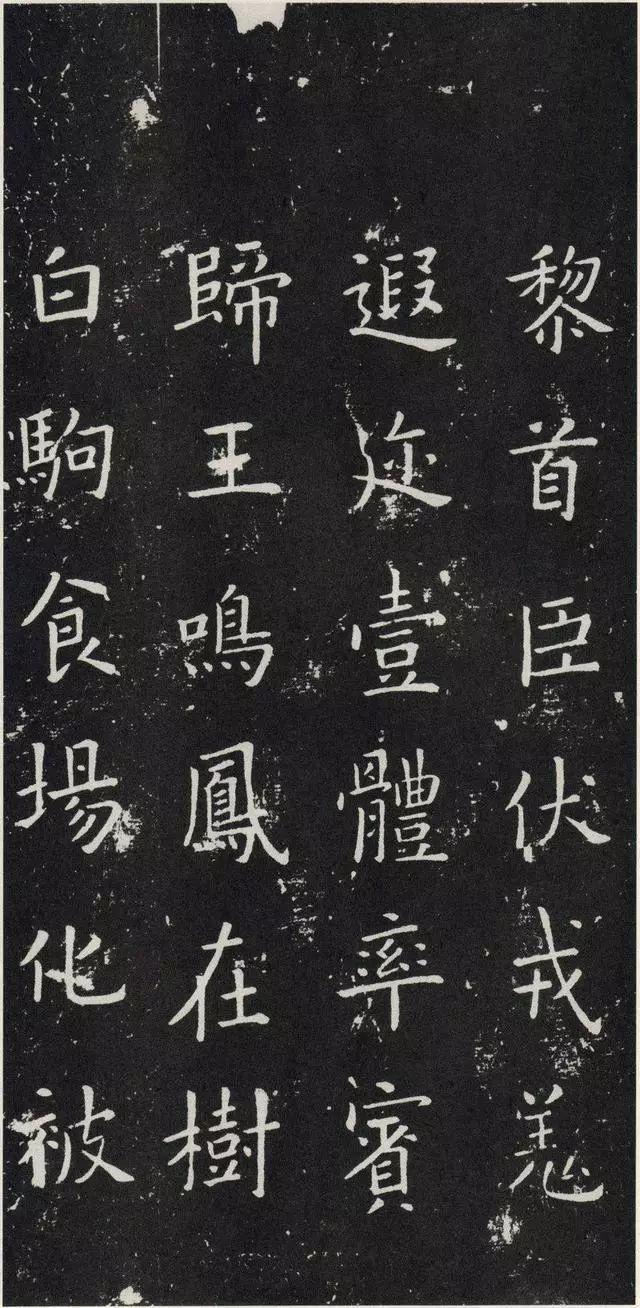 黎首臣伏戎羌
遐迩壹體率賓
歸王鳴鳳在樹
白駒食場化被